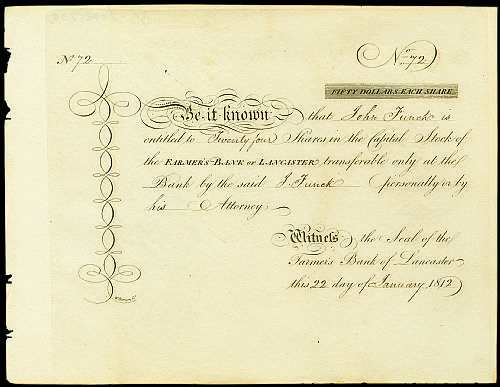 No 72
No 72
FIFTY DOLLARS EACH SHARE
Be it known that John Funck is
entitled to Twenty four Shares in the Capital Stock of
the FARMER'S BANK OF LANCASTER transferable only at the
Bank by the said J. Funck personally or by
his Attorney.
Witness the Seal of the
Farmer's Bank of Lancaster
this 22 day of January 1812